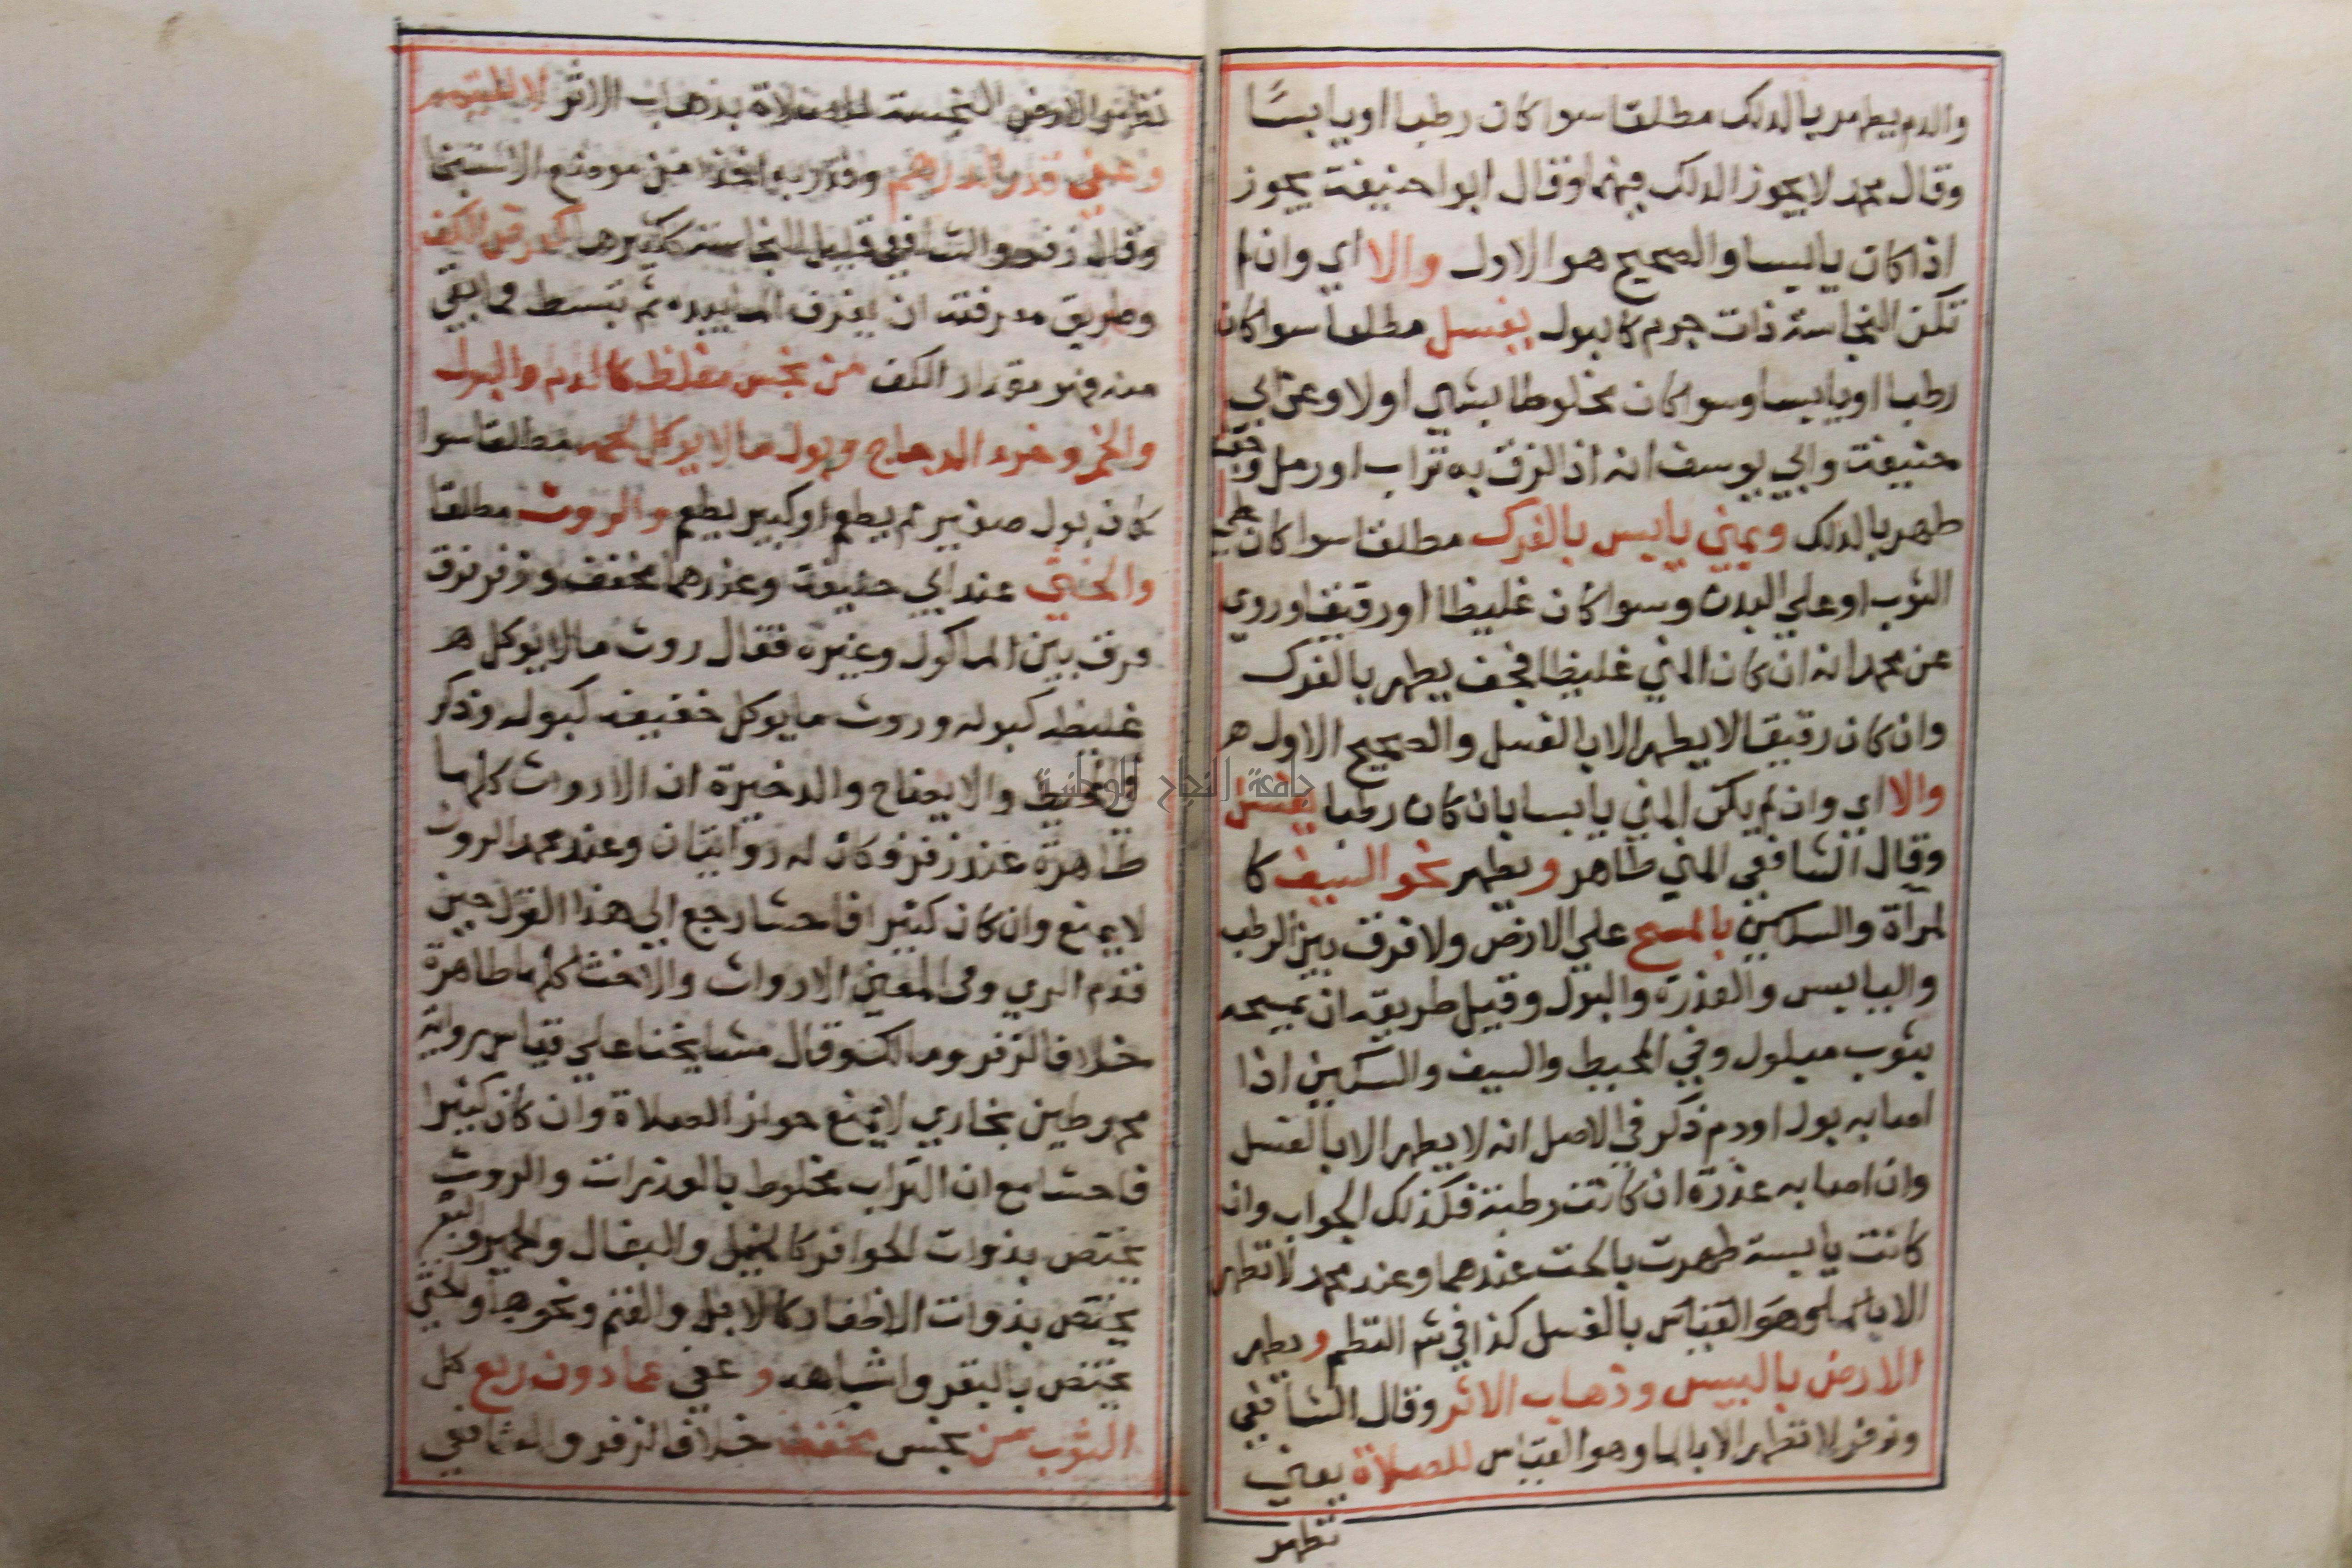 والدم يطهر بالدلك مطلقا سوا كان رطبا او يابسًا
وقال محمد لا يجوز الدلك فيهما وقال ابوا حنيفة يجوز
اذا كان يابسا والصحيح هو الاول والا اي وان لم
تكن النجاسة ذات جرم كالبول يغسل مطلقا سوا كان
رطبا او يابسا وسوا كان مخلوطا بشي اولا وعن ابي
حنيفة وابي يوسف انه اذ الزق به تراب او رمل وجف
طهر بالدلك وبمني يابس بالفرك مطلقا سوا كان علي
الثوب او علي البدن وسوا كان غليظا او رقيقا وروي
عن محمد انه ان كان المني غليظا فجف يطهر بالفرك
وان كان رقيقا لا يطهر الا بالغسل والصحيح الاول هـ
والا اي وان لم يكن المني يابسا بان كان رطبا يغسل
وقال الشافعي المني طاهر ويطهر نحو السيف كا
لمرآة والسكين بالمسح علي الارض ولا فرق بين الرطب
واليابس والعذرة والبول وقيل طريقه ان يمسحه
بثوب مبلول وفي المحيط والسيف والسكين اذا
اصابه بول او دم ذكر في الاصل انه لا يطهر الا بالغسل
وان اصابه عذرة ان كانت رطبة فكذلك الجواب وان
كانت يابسة طهرت بالحت عندهما وعند محمد لا تطهر
الا بالماء وهو القياس بالغسل كذا في شر النظم ويطهر
الارض باليبس وذهاب الاثر وقال الشافعي
وزفر لا تطهر الا بالما وهو القياس للصلاة يعني
تطهر
تطهر الارض النجسة للصلاة بذهاب الاثر لا للتيمم
وعفي قدر الدرهم وقدر به اخذا من موضع الاستنجا
وقال زفر والشافعي قليل النجاسة ككثيرها كعرض الكف
وطريق معرفته ان يغرف الما بيده ثم تبسط فما بقي
منه فهو مقدار الكف من نجس مغلظ كالدم والبول
والخمر وخرء الدجاج وبول ما لا يوكل لحمه مطلقا سوا
كان بول صغير لم يطعم او كبير يطعم والروث مطلقا
والخثي عند ابي حنيفة وعندهما مخفف وزفر فرق
فرق بين الماكول وغيره فقال روث ما لا يوكل هـ
غليظه كبوله وروث ما يوكل خفيفه كبوله وذكر
في المحيط والايضاح والذخيرة ان الارواث كلها
طاهرة عند زفر فكان له روايتان وعند محمد الروث
لا يمنع وان كان كثيرا فاحشا رجع الي هذا القول حين
قدم الري وفي المغني الارواث والاخثا كلها طاهرة
خلافا لزفر ومالك وقال مشايخنا علي قياس رواية
محمد طين بخاري لا يمنع جواز الصلاة وان كان كثيرا
فاحشا مع ان التراب مخلوط بالعذرات والروث
يختص بذوات الحوافر كالخيل والبغال والحمير والبعر
يختص بذوات الاظفار كالابل والغنم ونحوها والخثي
يختص بالبقر واشباهه وعفي عما دون ربع كل
الثوب من نجس مخفف خلافا لزفر والشافعي
جامعة النجاح الوطنية